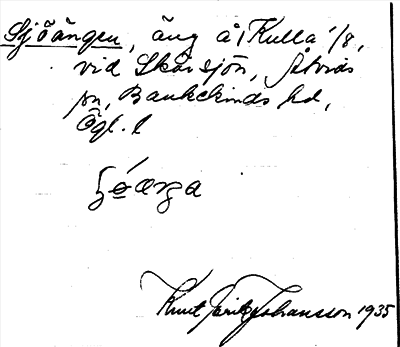 Sjöängen, äng å Kulla 1/8,
vid Skärsjön, Åtvids
sn, Bankekinds hd,
Ögl. l
Knut Johansson 1935